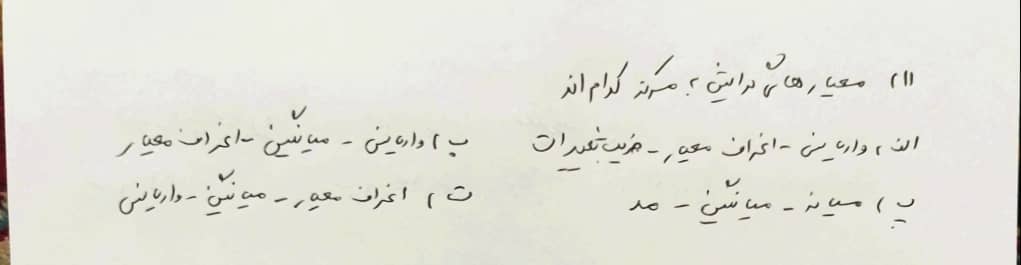 ۱۱) معیارهای گرایش به مرکز کدام اند
الف) واریانس - انحراف معیار - ضریب تغییرات
ب) واریانس - میانگین - انحراف معیار
پ) میانه - میانگین - مد
ت) انحراف معیار - میانگین - واریانس